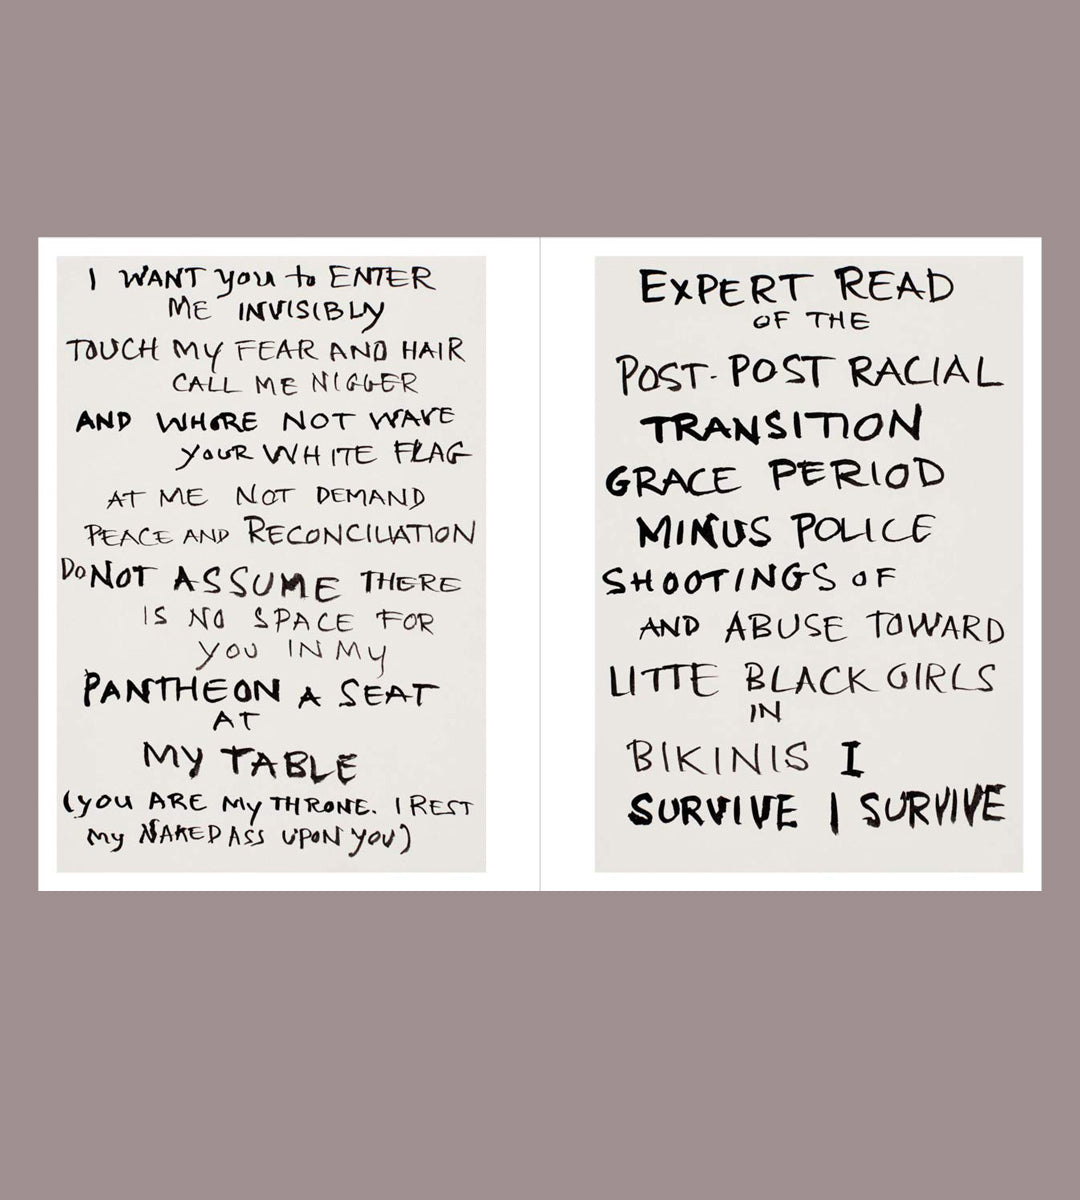 I WANT you to ENTER
ME INVISIBLY
TOUCH My FEAR AND HAIR
CALL ME NIGGER
AND WHORE NOT WAVE
YOUR WHITE FLAG
AT ME NOT DEMAND
PEACE AND RECONCILIATION
Do NOT ASSUME THERE
IS NO SPACE FOR
YOU IN My
PANTHEON A SEAT
AT
My TABLE
(you ARE My THRONE. I REST
My NAKED ASS UPON YOU)
EXPERT READ
OF THE
POST-POST RACIAL
TRANSITION
GRACE PERIOD
MINUS POLICE
SHOOTINGS OF
AND ABUSE TOWARD
LITTE BLACK GIRLS
IN
BIKINIS I
SURVIVE I SURVIVE